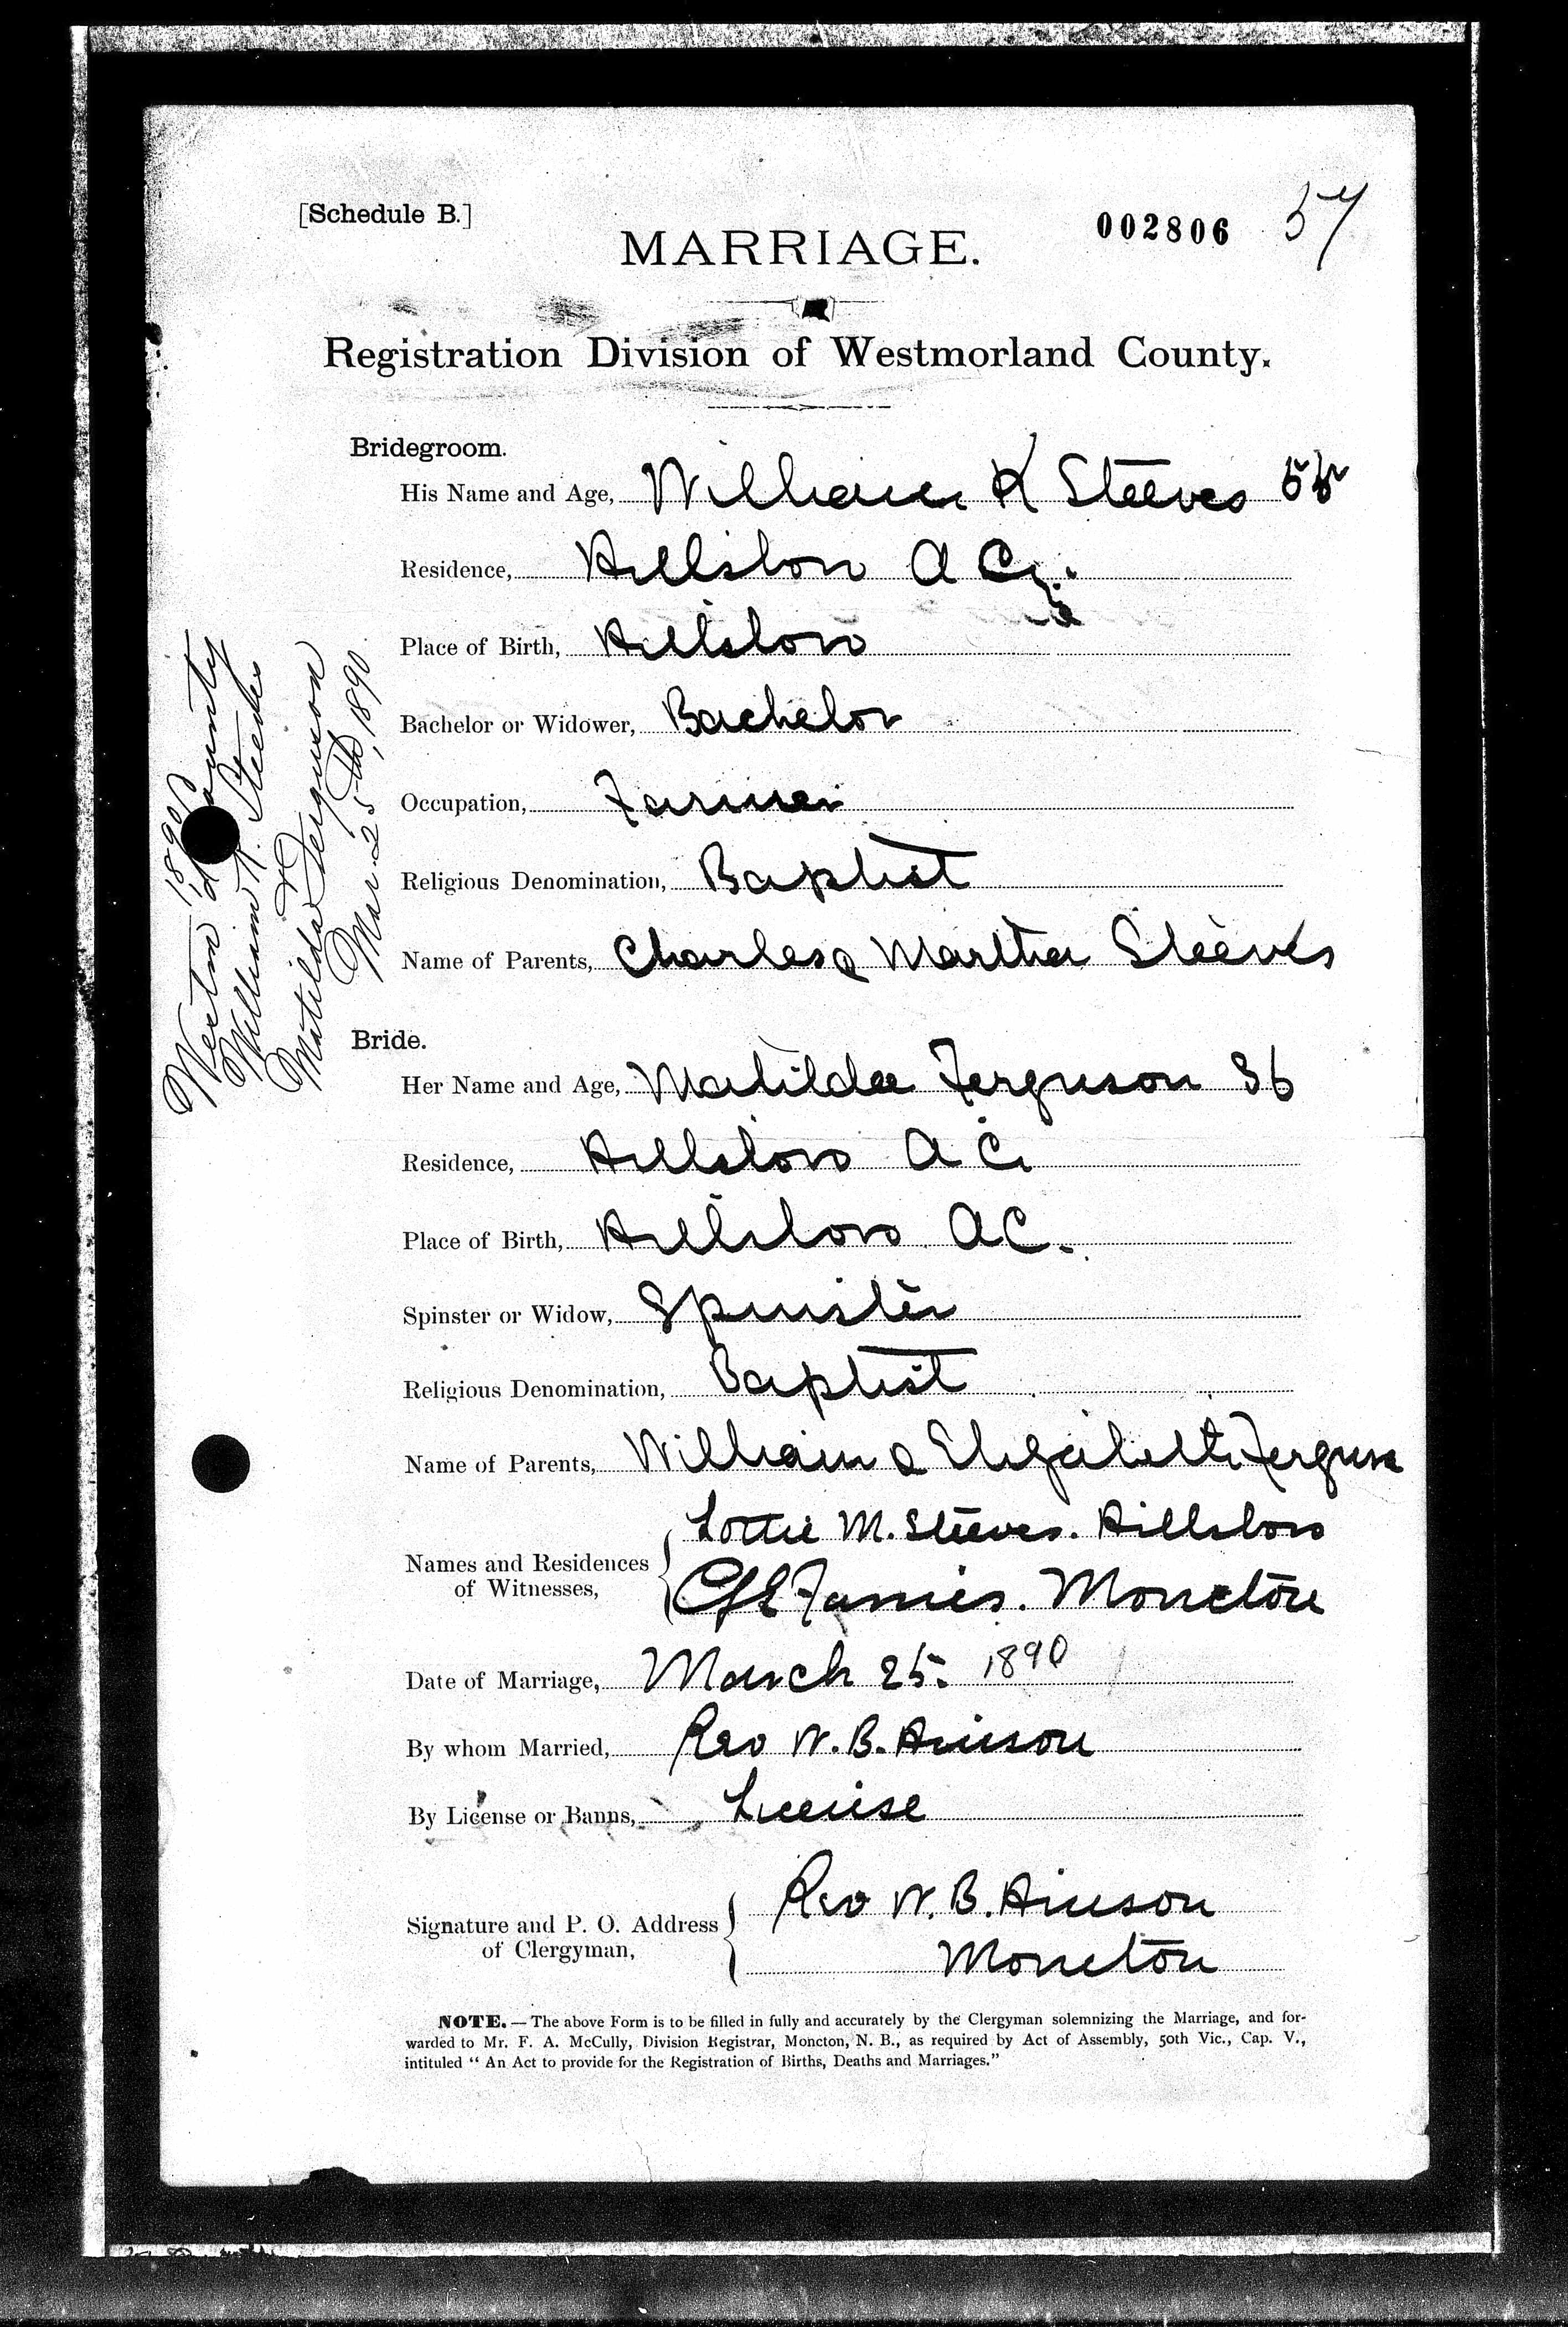 [Schedule B.]
002806 57
MARRIAGE.
Registration Division of Westmorland County.
Bridegroom.
His Name and Age, William K Steeves
Residence, Hillsboro A Co.
Place of Birth, Hillsboro
Bachelor or Widower, Bachelor
Occupation, Farmer
Religious Denomination, Baptist
Name of Parents, Charles & Martha Steeves
Bride.
Her Name and Age, Matilda Ferguson 36
Residence, Hillsboro A C.
Place of Birth, Hillsboro A C.
Spinster or Widow, Spinster
Religious Denomination, Baptist
Name of Parents, William & Elizabeth Ferguson
Names and Residences of Witnesses,
Lottie M. Steeves. Hillsboro
Moncton
Date of Marriage, March 25. 1890
By whom Married, Rev W. B. Hinson
By License or Banns, License
Signature and P. O. Address of Clergyman,
Rev W. B. Hinson
Moncton
NOTE.—The above Form is to be filled in fully and accurately by the Clergyman solemnizing the Marriage, and for-
warded to Mr. F. A. McCully, Division Registrar, Moncton, N. B., as required by Act of Assembly, 50th Vic., Cap. V.,
intituled “An Act to provide for the Registration of Births, Deaths and Marriages.”
1890
Westm'd County
William K. Steeves
&
Matilda Ferguson
Mar. 25th, 1890